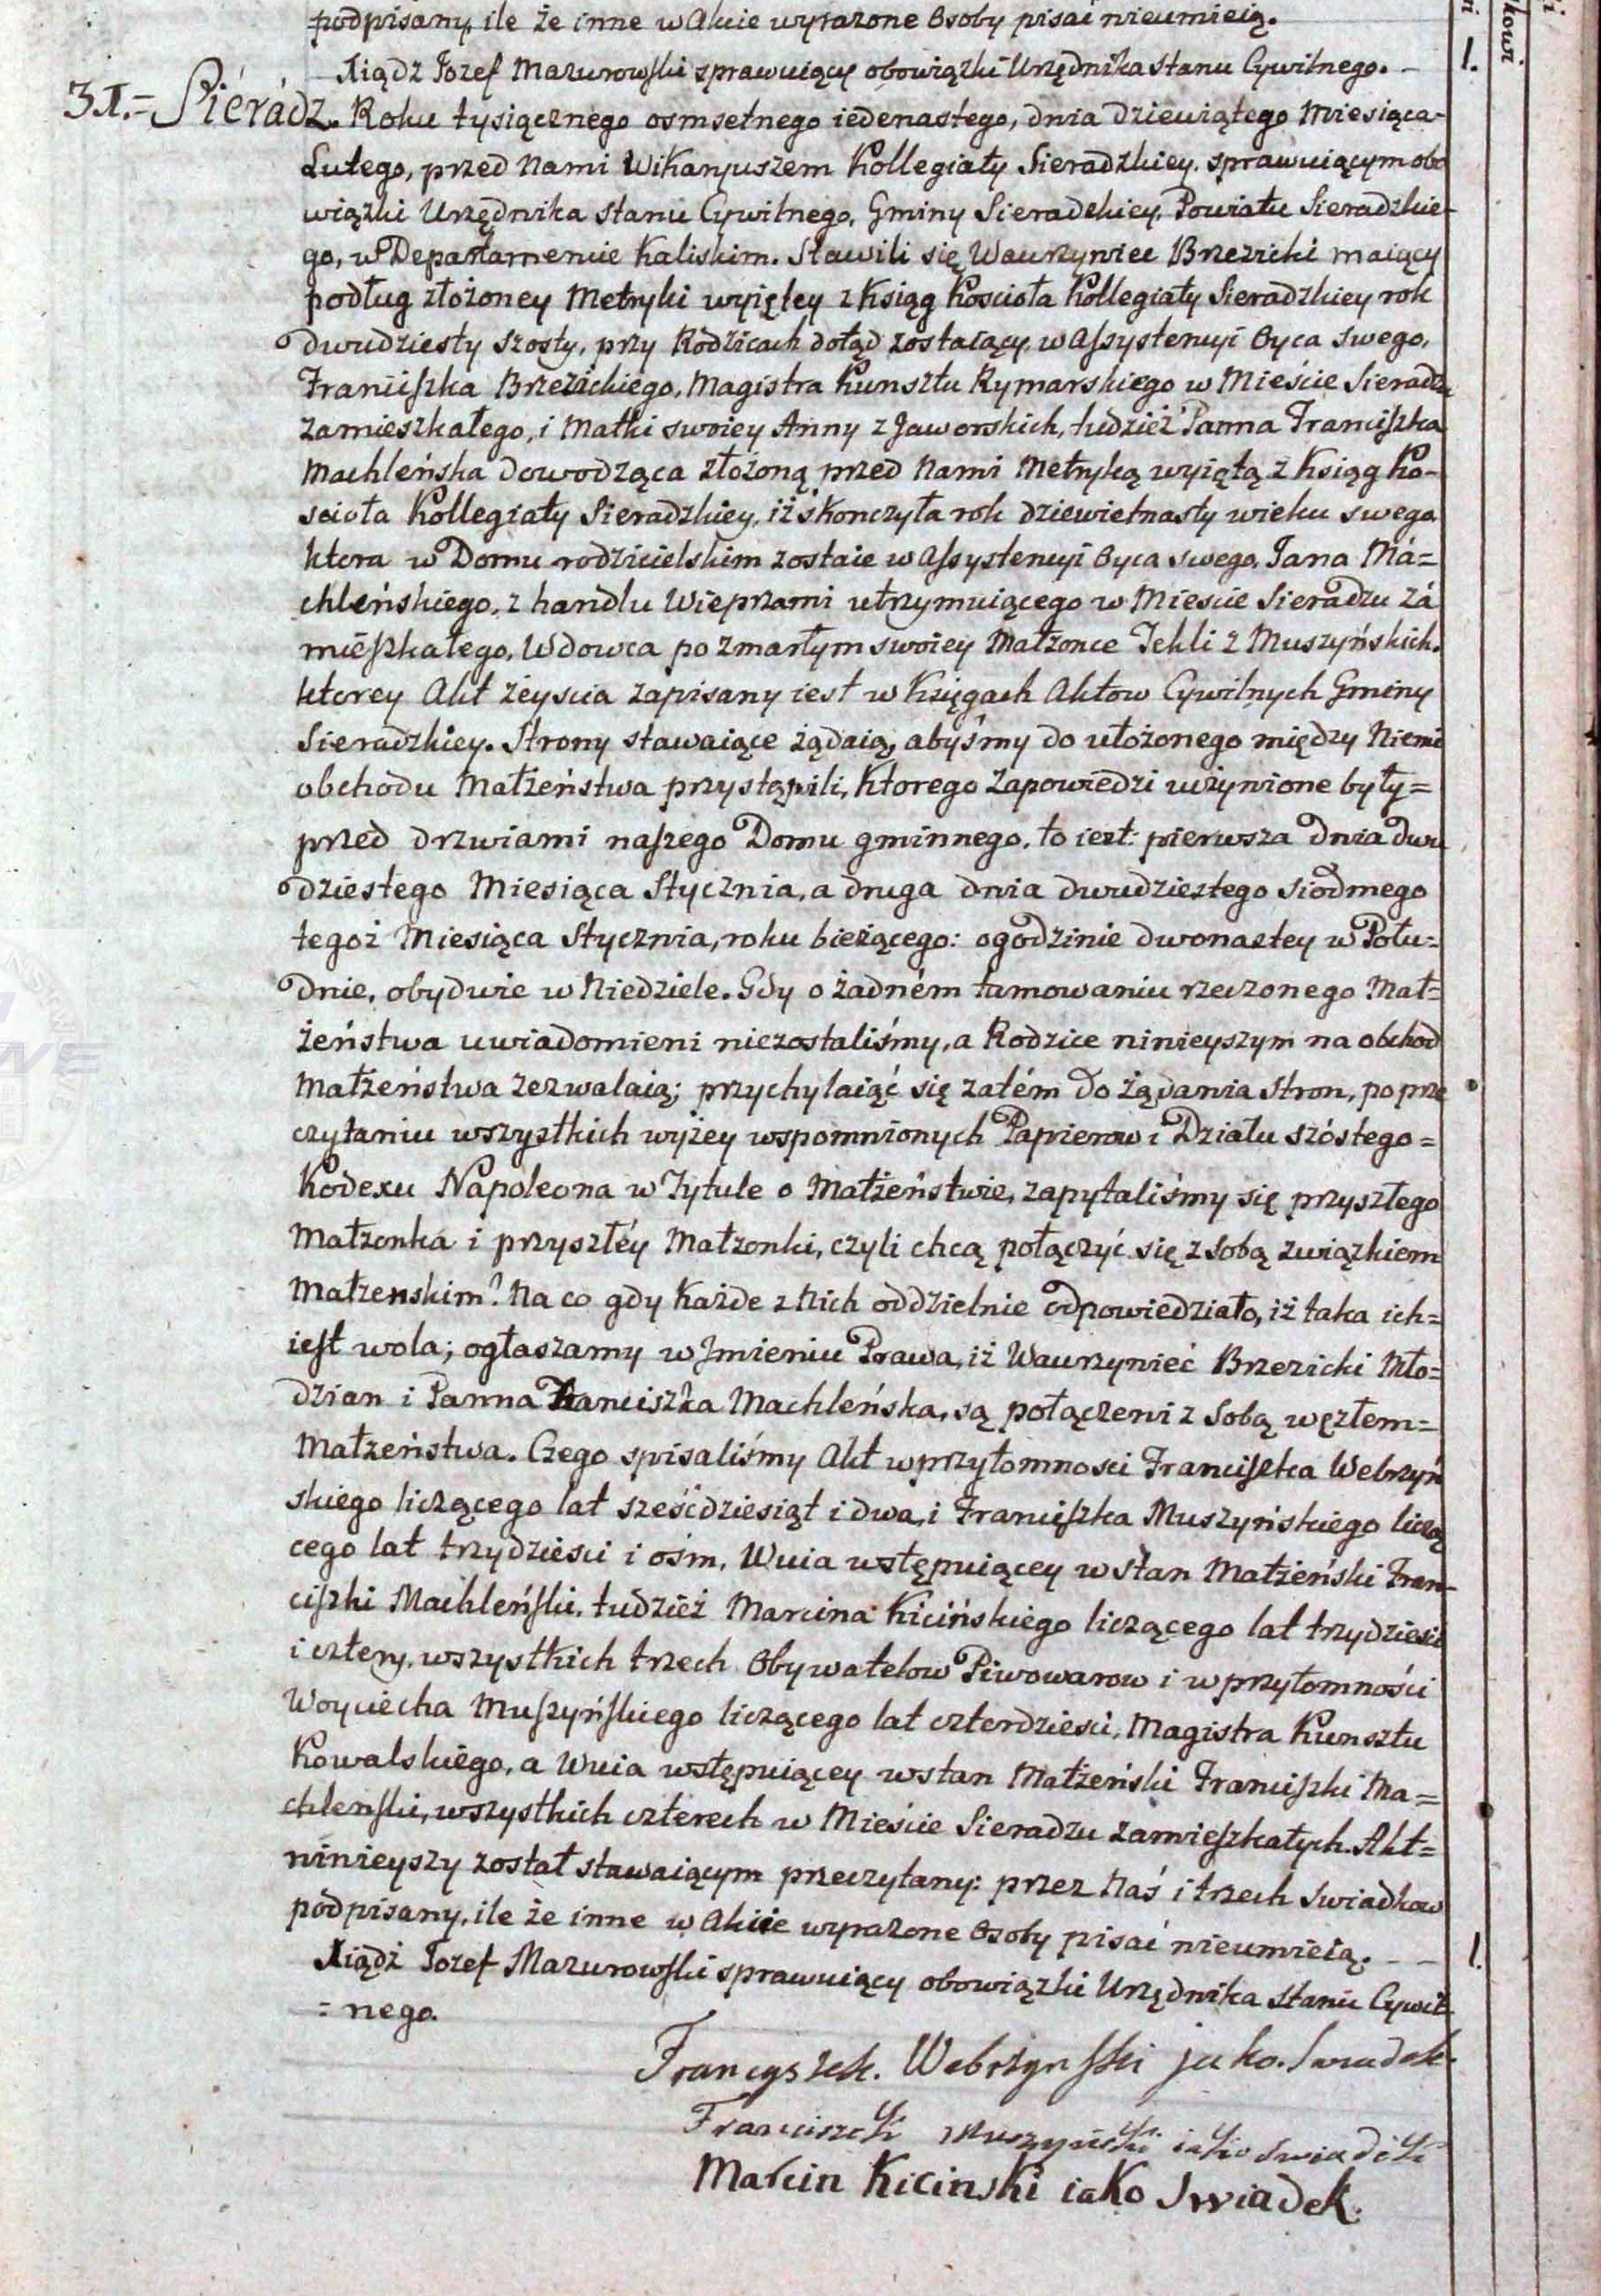 podpisany, ile że inne w Akcie wyrażone Osoby pisać nieumieią.
Xiądz Jozef Mazurowski sprawuiący obowiązki Urzędnika Stanu Cywilnego. –
31.= Siérádz. Roku tysiącznego osmsetnego iedenastego, dnia dziewiątego Miesiąca
Lutego, przed Nami Wikaryuszem Kollegiaty Sieradzkiey, sprawuiącym obo
wiązki Urzędnika Stanu Cywilnego, Gminy Sieradzkiey, Powiatu Sieradzkie-
go, w Departamencie Kaliskim. Stawili się Wawrzyniec Brzezicki maiący
podług złożoney Metryki wyiętey z Ksiąg Kościoła Kollegiaty Sieradzkiey rok
dwudziesty szosty, przy Rodzicach dotąd zostaiący, w Assystencyi Oyca swego,
Franciszka Brzezickiego, Magistra Kunsztu Rymarskiego w Mieście Sieradzu
zamieszkałego, i Matki swoiey Anny z Jaworskich, tudzież Panna Franciszka
Machleńska dowodząca złożoną przed Nami Metryką wyiętą z Ksiąg Ko-
scioła Kollegiaty Sieradzkiey, iż skonczyła rok dziewietnasty wieku swego
ktora w Domu rodzicielskim zostaie w Assystencyi Oyca swego, Jana Má=
chleńskiego, z handlu Wieprzami utrzymuiącego w Miescie Sieradzu zá
mieszkałego, Wdowca po zmarłym swoiey Małżonce Tekli z Muszyńskich.
ktorey Akt zeyscia zapisany iest w Księgach Aktow Cywilnych Gminy
Sieradzkiey. Strony stawaiące żądaią, abyśmy do ułożonego między Niemi
obchodu Małżeństwa przystąpili, ktorego Zapowiedzi uczynione były=
przed drzwiami naszego Domu gminnego, to iest: pierwsza dnia dwu
dziestego Miesiąca Stycznia, a druga dnia dwudziestego siodmego
tegoż Miesiąca Stycznia, roku bieżącego: o godzinie dwonastey w Połu=
dnie, obydwie w Niedziele. Gdy o żadném tamowaniu rzeczonego Mał=
żeństwa uwiadomieni niezostaliśmy, a Rodzice ninieyszym na obchod
Małżeństwa zezwalaią; przychylaiąć się zatém do żądania Stron, po prze
czytaniu wszystkich wyżey wspomnionych Papierow i Działu szóstego=
Kodexu Napoleona w Tytule o Małżeństwie, zapytaliśmy się przyszłego
Małzonka i przyszłéy Małzonki, czyli chcą połączyć się z sobą związkiem
Małzenskim? Na co gdy każde z Nich oddzielnie odpowiedziało, iż taka ich=
iest wola; ogłaszamy w Jmieniu Prawa, iż Wawrzyniec Brzezicki Mło=
dzian i Panna Franciszka Machleńska, są połączeni z sobą węzłem=
Małżeństwa. Czego spisaliśmy Akt w przytomnosci Franciszka Webrzyń
skiego liczącego lat sześćdziesiąt i dwa, i Franciszka Muszyńskiego liczą
cego lat trzydziesci i ośm, Wuia wstępuiącey w stan Małżeński Fran-
ciszki Machleński, tudzież Marcina Kicińskiego liczącego lat trzydziesci
i cztery, wszystkich trzech Obywatelow Piwowarow i w przytomności
Woyciecha Muszyńskiego liczącego lat czterdziesci, Magistra Kunsztu
Kowalskiego, a Wuia wstępuiącey w stan Małżeński Franciszki Ma=
chlenski, wszystkich czterech w Mieście Sieradzu zamieszkałych. Akt=
ninieyszy został stawaiącym przeczytany: przez Naś i trzech Swiadkow
podpisany, ile że inne w Akcie wyrażone Osoby pisać nieumieią. – –
Xiądz Jozef Mazurowski sprawuiący obowiązki Urzędnika Stanu Cywil
=nego.
Francyszek. Webrzynski jako. Swiadek.
Franciszek Muszyński iako Swiadek
Marcin Kicinski iako Swiadek.